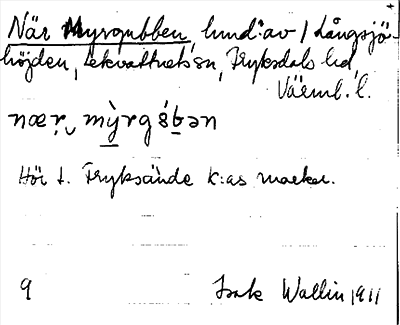 När Myrgubben, lund: av / Långsjö-
höjden, Lekvattnets sn, Fryksdals hd,
Värml. l.
næṛ‿ mỳrgúbən
Hör t. Fryksände k:as marker.
9 Isak Wallin 1911